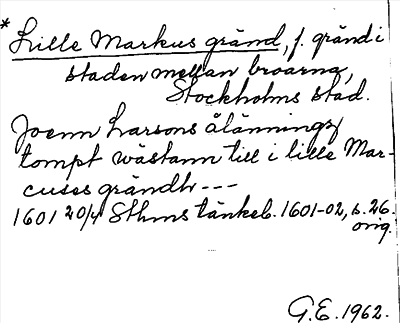 * Lille Markus gränd, f. gränd i
staden mellan broarna,
Stockholms stad.
Joenn Larsons ålännings
tompt wästann till i lille Mar-
cuses grändh ---
1601 20/4 Sthms tänkeb. 1601-02, s. 26.
orig.
G.E. 1962.